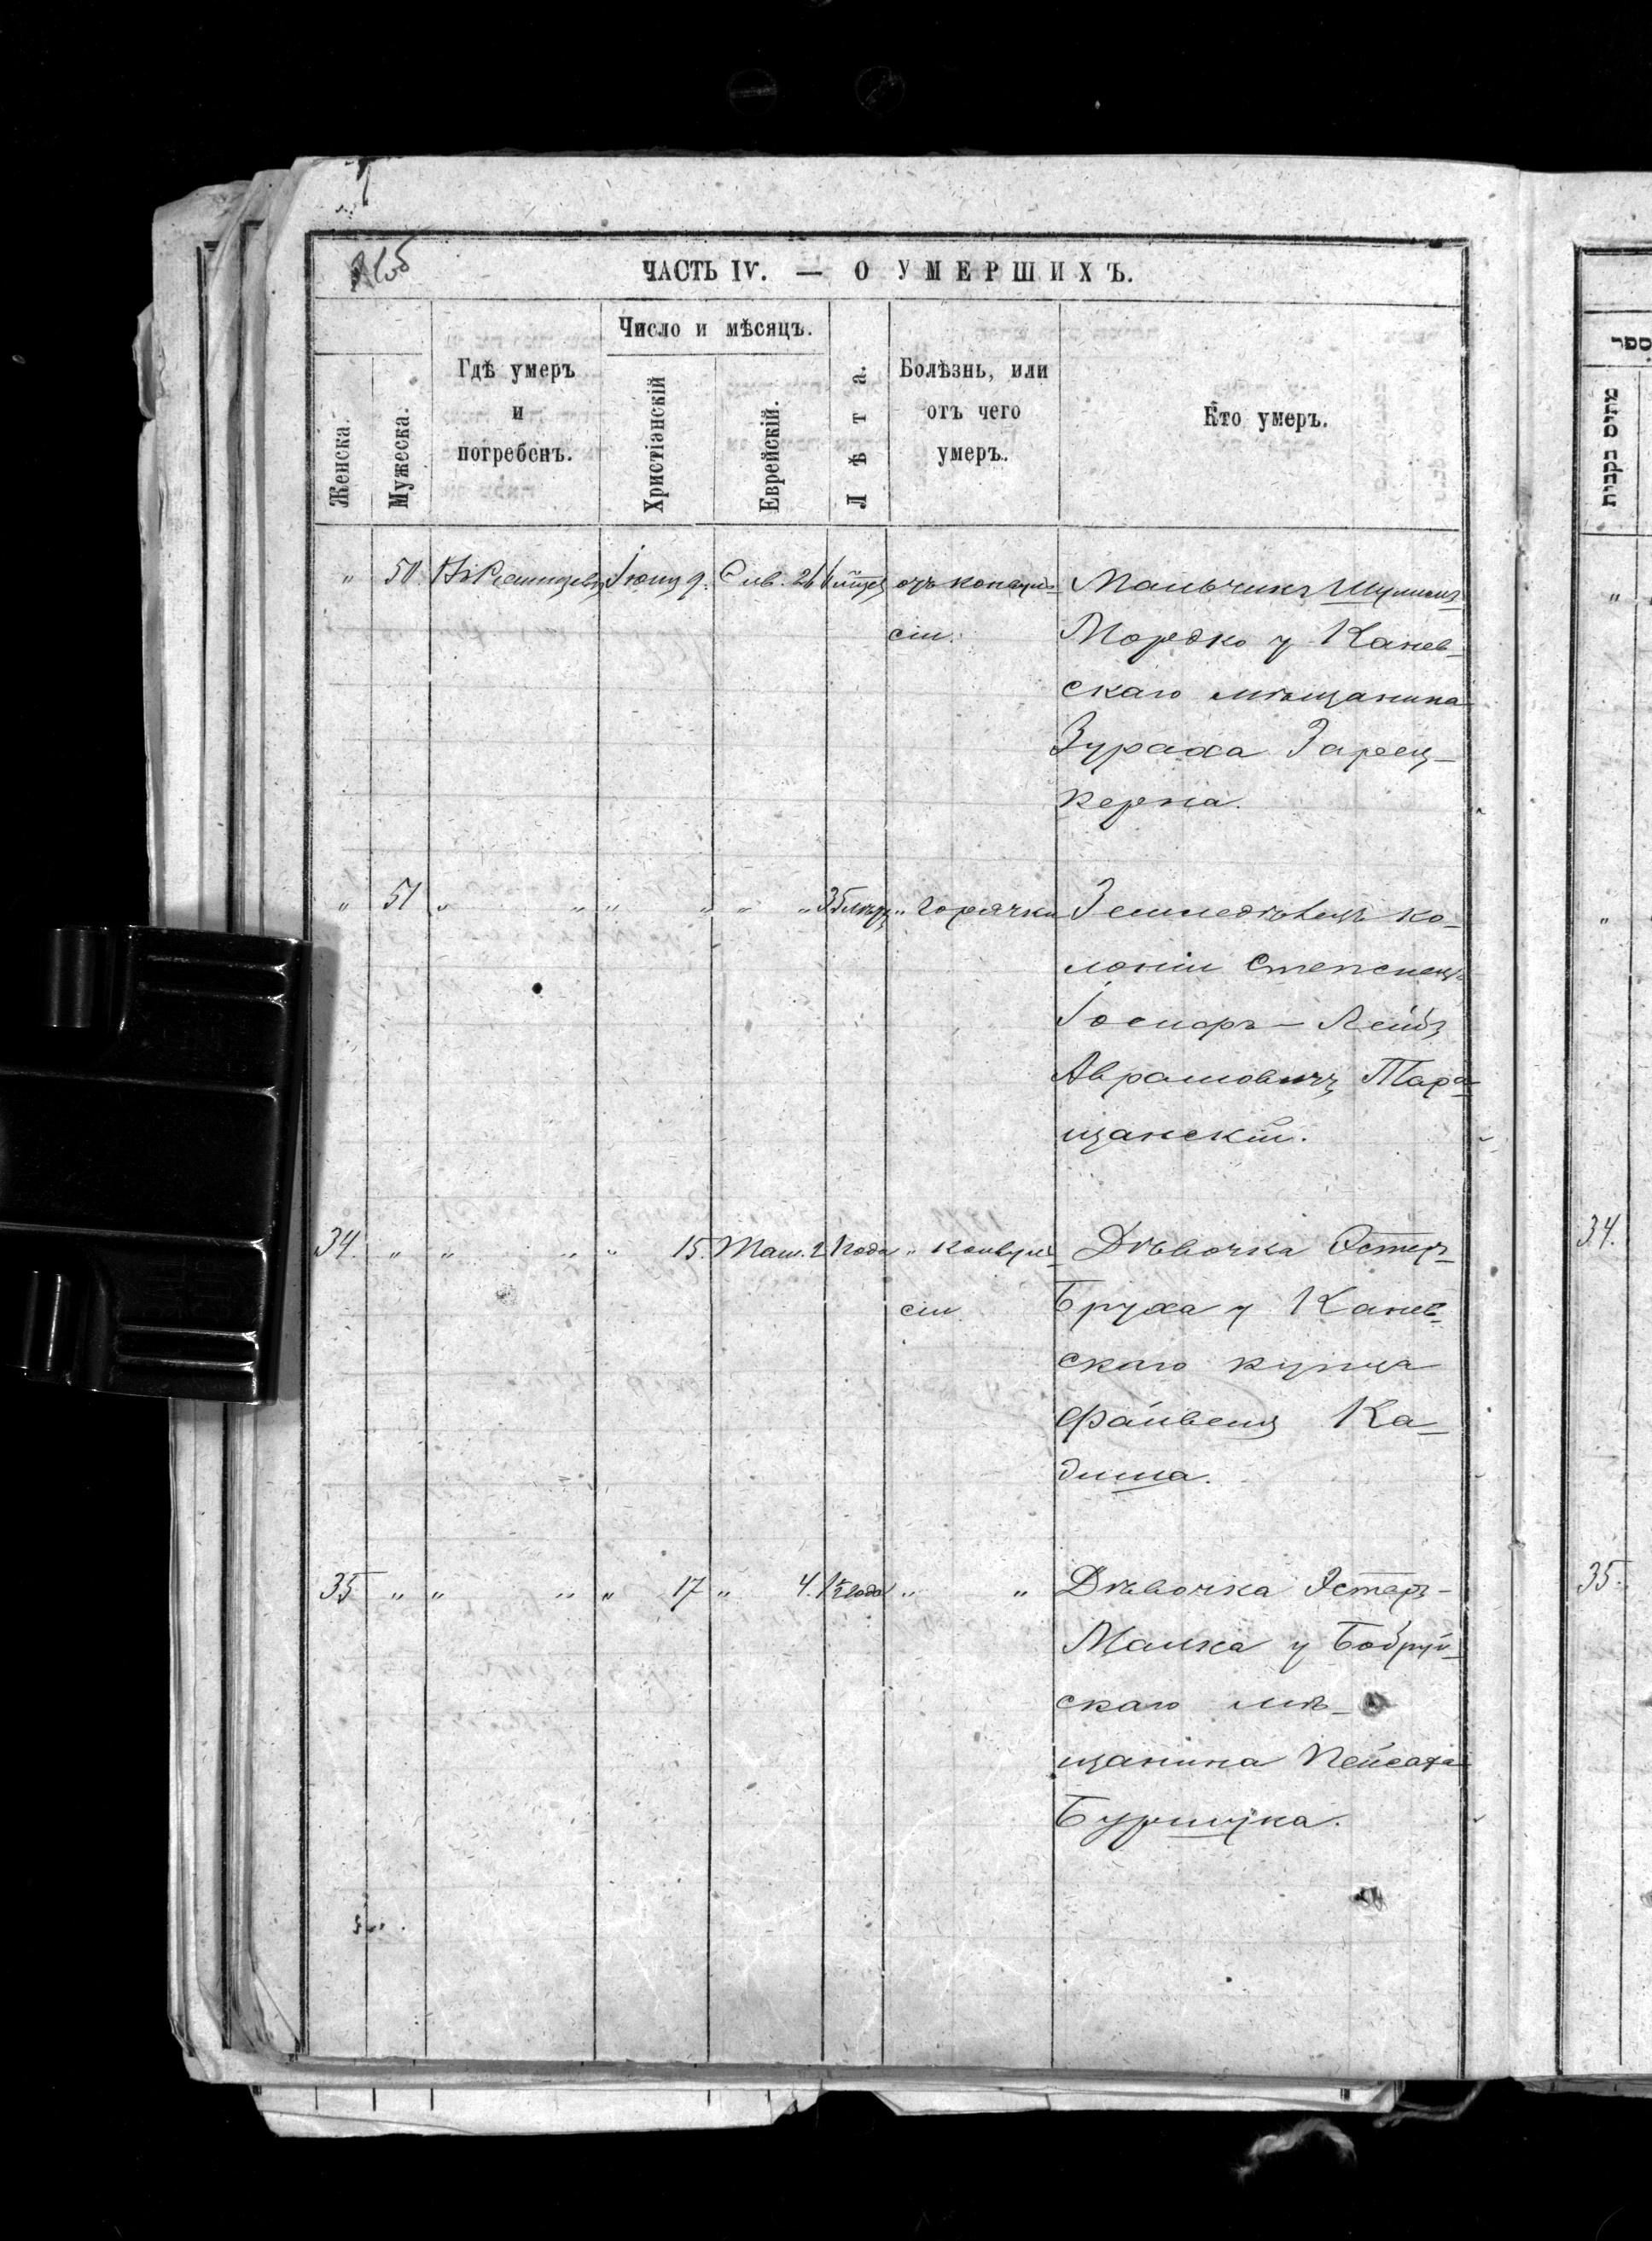 ЧАСТЬ IV. — О УМЕРШИХЪ.
Женска.
Мужеска.
Гдѣ умеръ
и
погребенъ.
Число и мѣсяцъ.
Христіанскій
Еврейскій.
Лѣта.
Болѣзнь, или
отъ чего
умеръ.
Кто умеръ.
„ 50 Іюня 9. Сив. 26 отъ конвуль-
сіи.
Мальчикъ Шулимъ
Мордко у Канев-
скаго мѣщанина
Зураха Зарец-
кера.
„ 51 „ „ „ „ „ „ 35 лѣтъ „ горячки
Земледѣлецъ ко-
лоніи Степанецъ
Іосифъ-Лейбъ
Аврамовичъ Тара-
щанскій.
34. „ „ „ „ 15. Там. 2 1 года „ конвуль-
сіи.
Дѣвочка Эстеръ
Бруха у Канев-
скаго купца
Файвеля Ка-
диша.
35 „ „ „ „ 17 „ 4. 1½ года „ „
Дѣвочка Эстеръ-
Малка у Бобруй-
скаго мѣ-
щанина Пейсаха
Буришка.
ספר
מתים נקבות
„
„
34.
35.